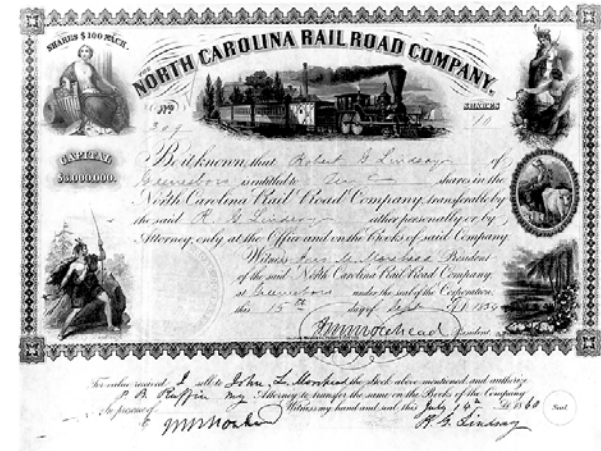 SHARES $100 EACH.
NORTH CAROLINA RAIL ROAD COMPANY.
No
309
SHARES
10
CAPITAL
$3,000,000.
Be it known, that Robert G Lindsay of
Greensboro is entitled to Ten shares in the
North Carolina Rail Road Company, transferable by
the said R. G Lindsay either personally or by
Attorney, only at the Office and on the Books of said Company.
Witness Jno. M. Morehead President
of the said North Carolina Rail Road Company,
at Greensboro under the seal of the Corporation,
this 15th day of Sept AD 1854
J M Morehead President
For value received I sell to John L. Morehead the Stock above mentioned and authorize
P B Ruffin my Attorney to transfer the same on the Books of the Company
In presence of Witness my hand and seal, this July 14th AD 1860 Seal
R. G. Lindsay